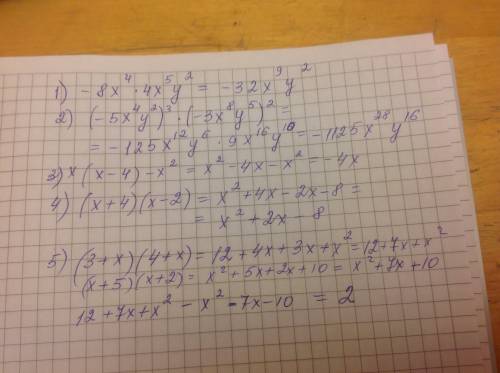 1) -8x⁴·4x⁵y² = -32x⁹y²
2) (-5x⁴y²)³·(-3x⁸y⁵)² =
= -125x¹²y⁶·9x¹⁶y¹⁰ = -1125x²⁸y¹⁶
3) x(x-4)-x² = x²-4x-x² = -4x
4) (x+4)(x-2) = x²+4x-2x-8 =
= x²+2x-8
5) (3+x)(4+x) = 12+4x+3x+x² = 12+7x+x²
(x+5)(x+2) = x²+5x+2x+10 = x²+7x+10
12+7x+x²-x²-7x-10 = 2